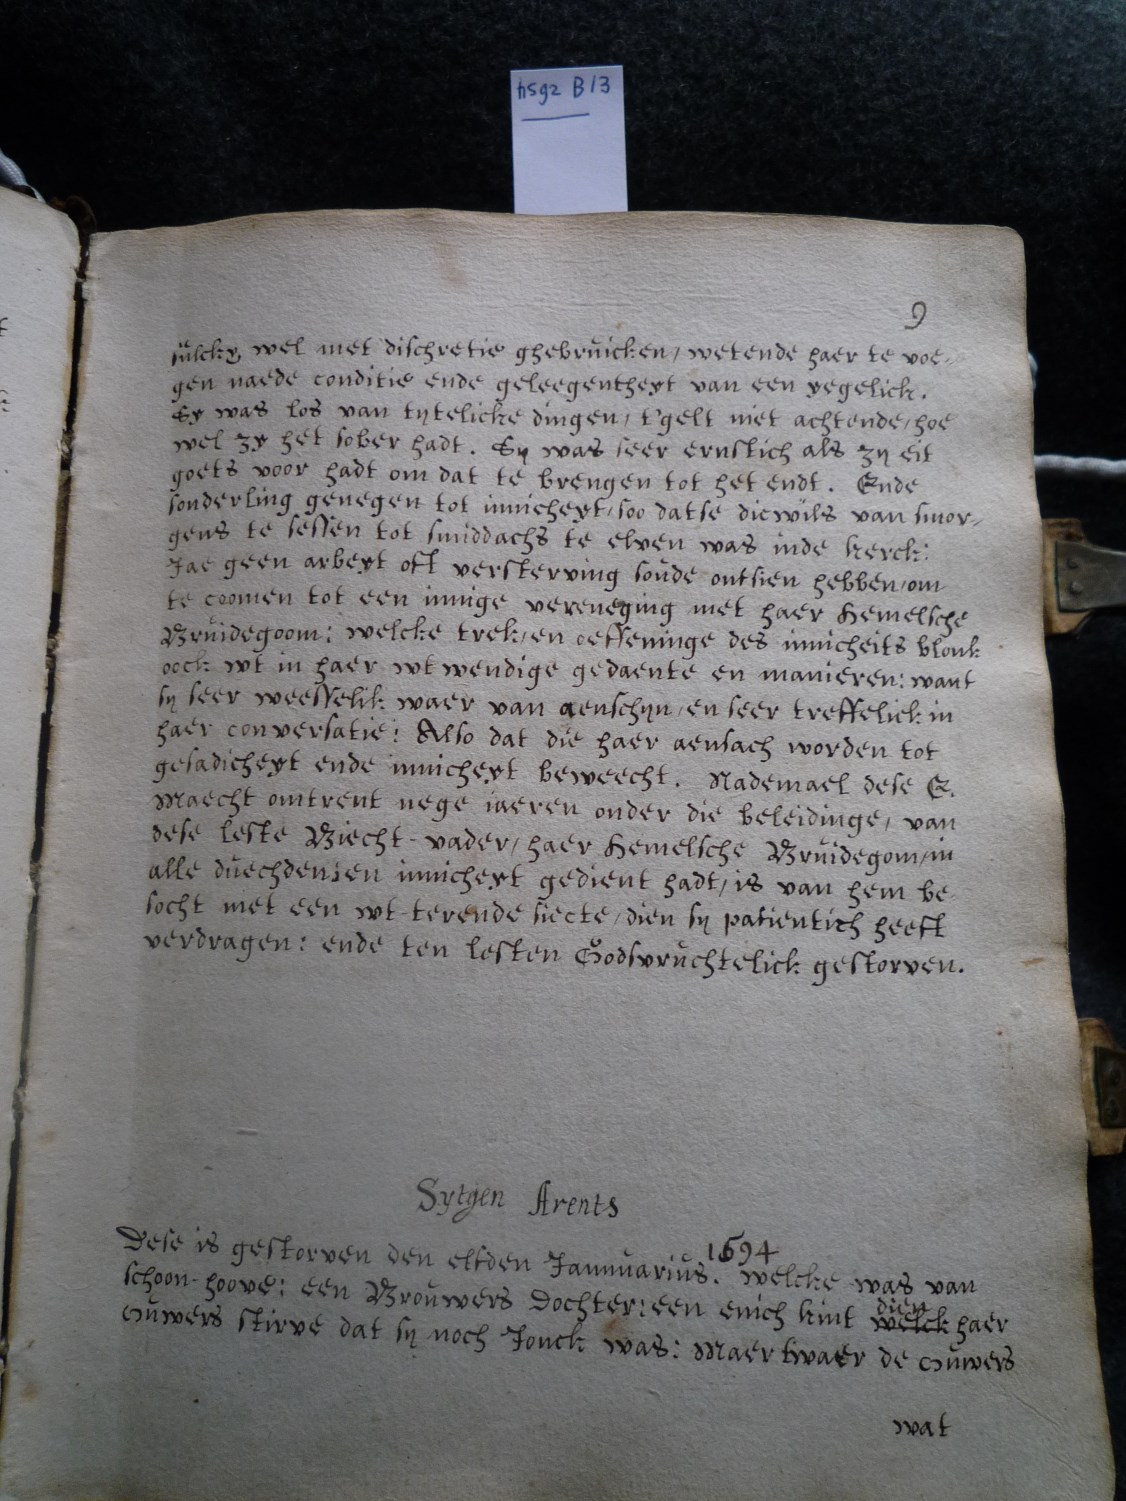 hsg2 B13
9
sulckx wel met dischretie ghebruicken / wetende haer te voe-
gen naede conditie ende geleegentheyt van een yegelick.
Sy was los van tytelicke dingen / t'gelt niet achtende / hoe
wel zy het sober hadt. Sy was seer ernstich als zy eit
goets voor hadt om dat te brengen tot het endt. Ende
sonderling genegen tot innicheyt / soo datse dicwils van smor-
gens te sessen tot smiddachs te elven was inde kerck:
Jae geen arbeyt oft versterving soude ontsien hebben / om
te coomen tot een innige vereneging met haer Hemelsche
Bruidegoom: welcke trek / en oeffeninge des innicheits blonk
oock wt in haer wtwendige gedaente en manieren: want
sy seer weesselik waer van aenschyn / en seer treffelick in
haer conversatie: Also dat die haer aensach worden tot
gesadicheyt ende innicheyt beweecht. Nademael dese E.
Maecht omtrent nege iaeren onder die beleidinge / van
dese leste Biecht-vader / haer Hemelsche Bruidegom / in
alle duechden: en innicheyt gedient hadt / is van hem be-
socht met een wt-terende siecte / dien sy patientich heeft
verdragen: ende ten lesten Godsvruchtelick gestorven.
Sytgen Arents
Dese is gestorven den elfden Jannuarius. 1694 welcke was van
schoon-hoove: een Brouwers Dochter: een enich kint welck dien haer
ouwers stirve dat sy noch Jonck was: Maer twaer de ouwers
wat